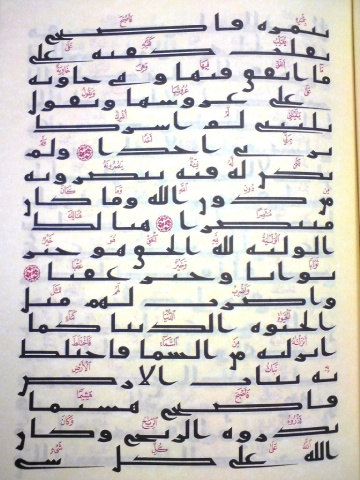 بثمره فاصبح
يقلب كفيه على
ما انفق فيها وهى خاويه
على عروشها ويقول
يليتنى لم اشرك
بربى احدا ولم
تكن له فئه ينصرونه
من دون الله وما كان
منتصرا هنالك
الوليه لله الحق هو خير
ثوابا وخير عقبا
واضرب لهم مثل
الحيوه الدنيا كما
انزلنه من السما فاختلط
به نبات الارض
فاصبح هشيما
تذروه الريح وكان
الله على كل شى